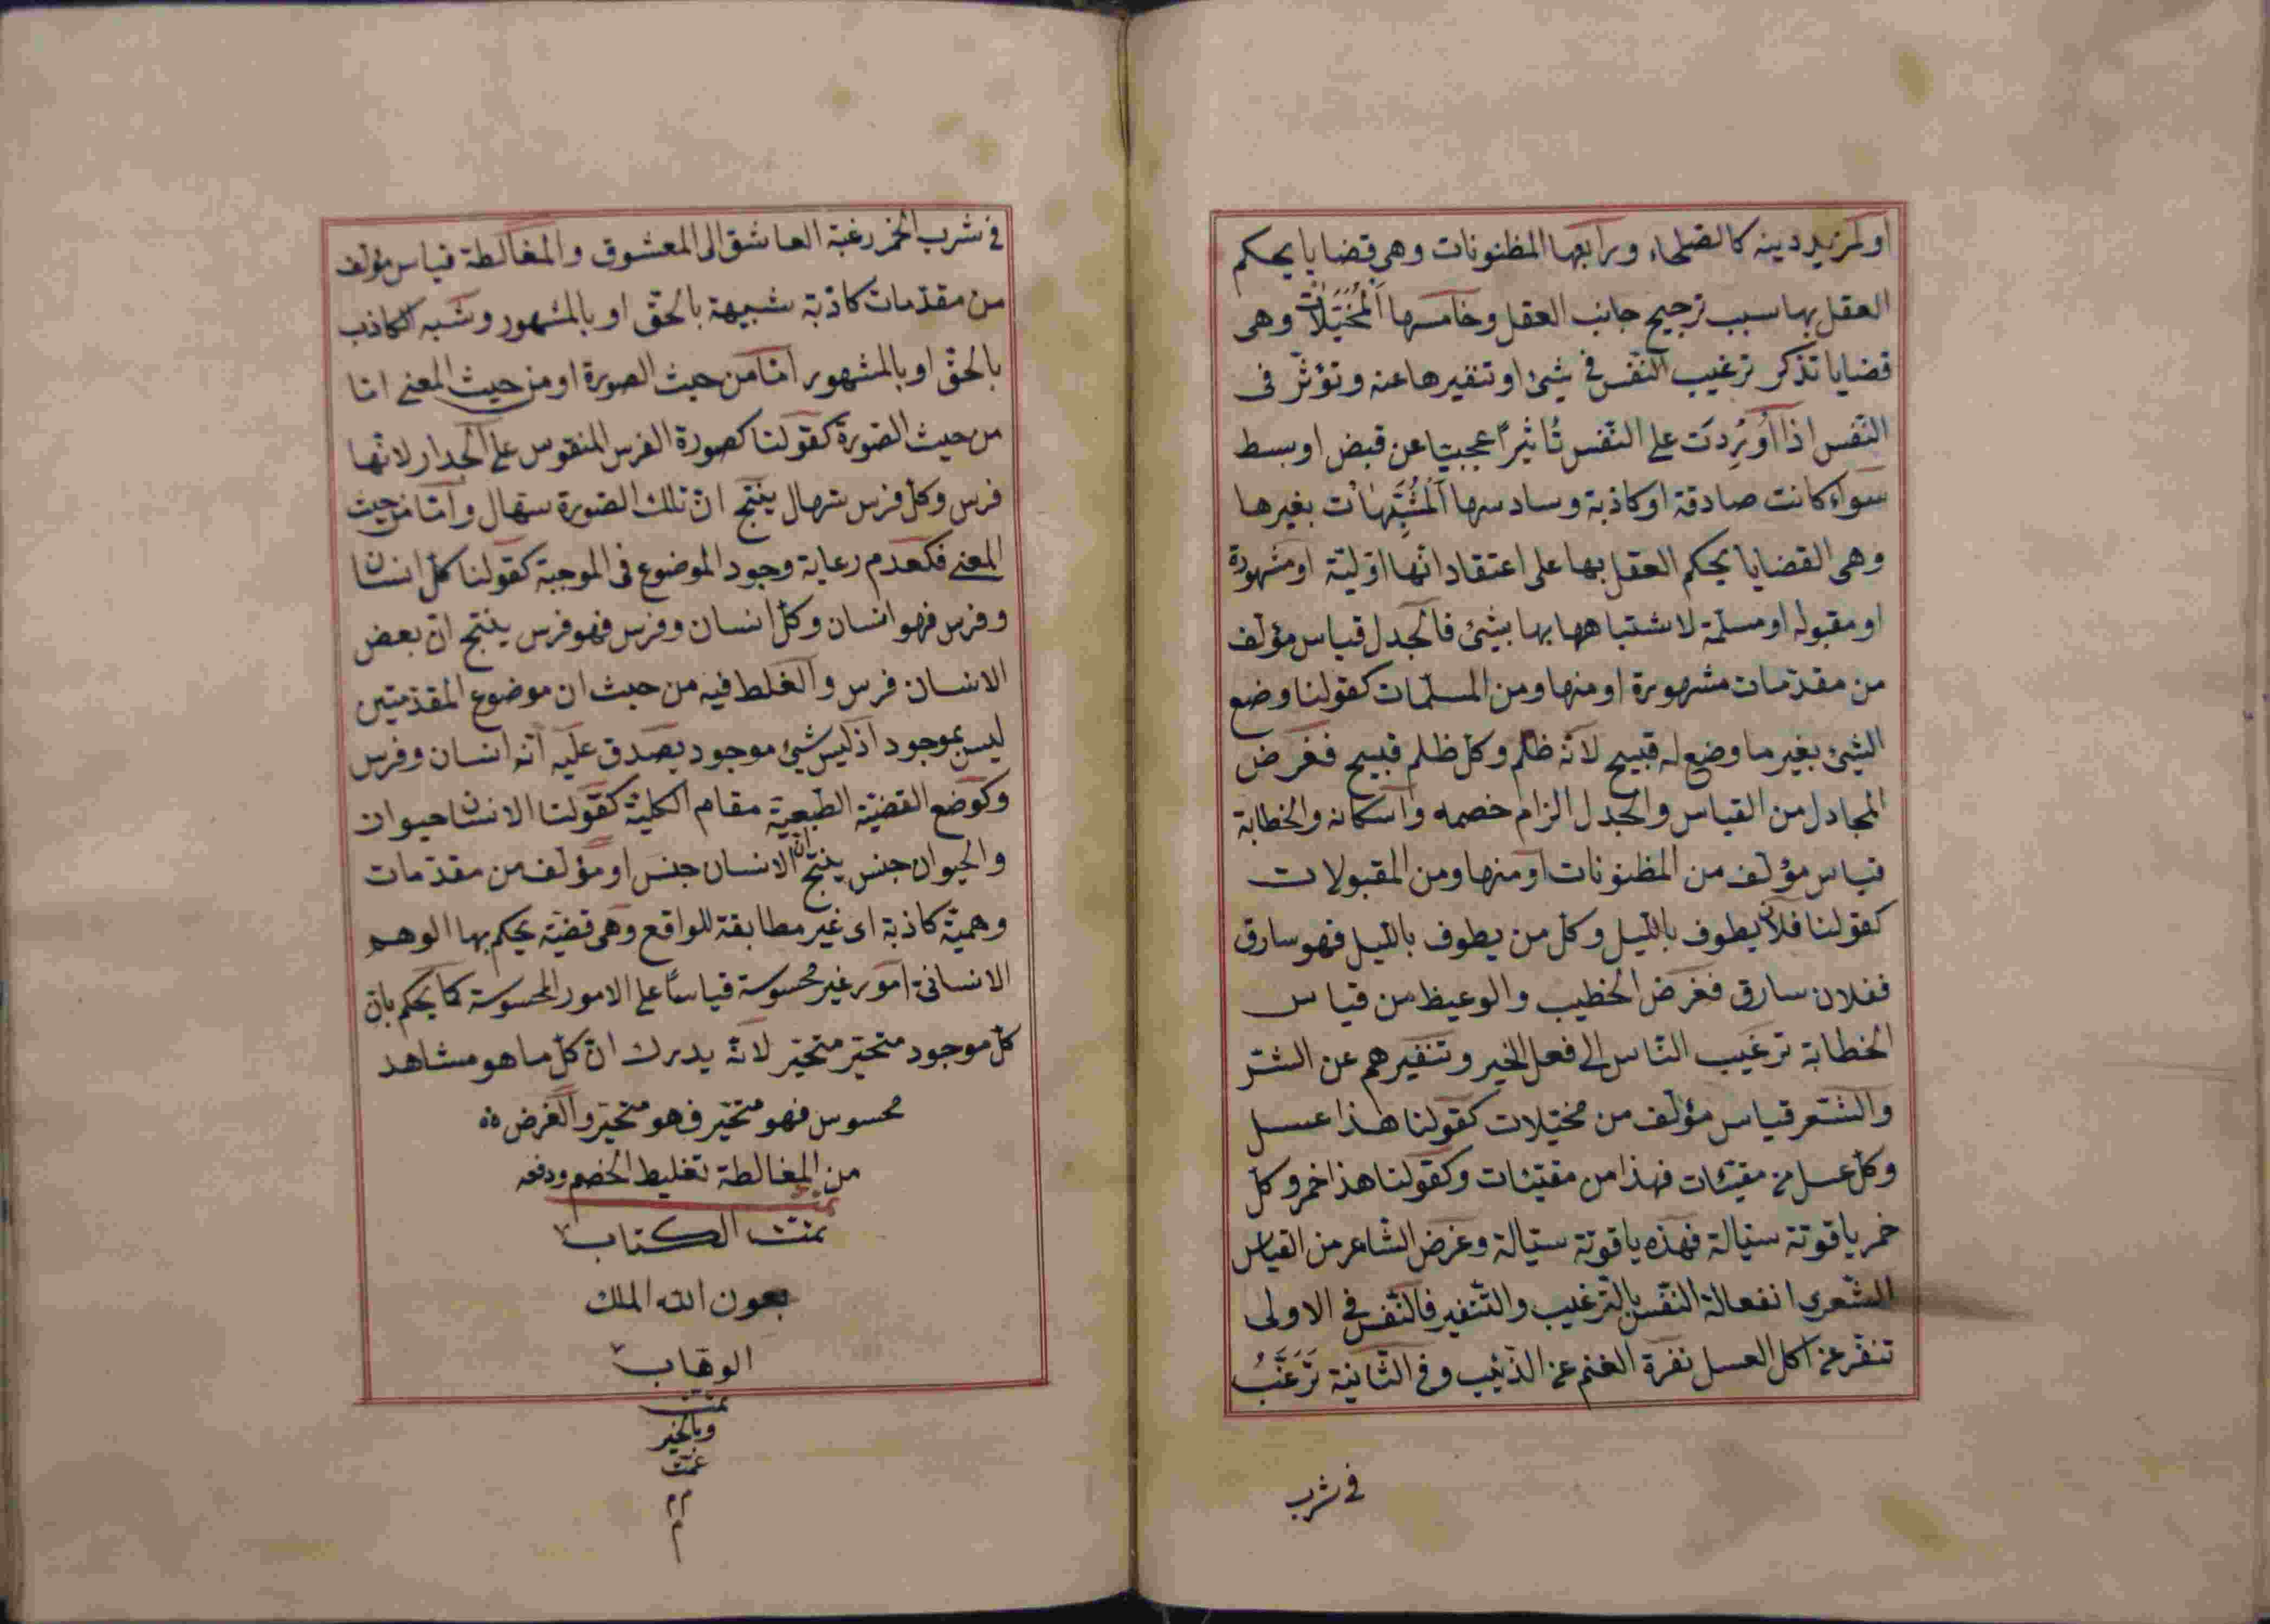 او لمزيد دينه كالصلحاء ورابعها المظنونات وهى قضايا يحكم
العقل بها سبب ترجيح جانب العقل وخامسها المُخَيَّلَاتُ وهى
قضايا تذكر ترغيب النّفس فى شيئ او تنفيرها عنه وتؤثّر فى
النّفس اذا اُورِدَت على النّفس تأثيراً عجيبيا عن قبض او بسط
سواء كانت صادقة او كاذبة وسادسها اَلمُشَبَّهَاتُ بغيرها
وهى القضايا يحكم العقل بها على اعتقاد انّها اوّليّة او مشهورة
او مقبوله او مسلّمة لاشتباهها بها بشيئ فالجدل قياس مؤلّف
من مقدّمات مشهورة او منها ومن المسلّمات كقولنا وضع
الشيئ بغير ما وضع له قبيح لانّه ظلم وكلّ ظلم قبيح فغرض
المجادل من القياس والجدل الزام خصمه واسكانه والخطابة
قياس مؤلّف من المظنونات او منها ومن المقبولات
كقولنا فلان يطوف بالّيل وكلّ من يطوف بالّيل فهو سارق
ففلان سارق فغرض الخطيب والوعيظ من قياس
الخطابة ترغيب النّاس الى فعل الخير وتنفيرهم عن الشّر
والشّعر قياس مؤلّف من مخيّلات كقولنا هذا عسل
وكلّ عسل من مقيّئات فهذا من مقيّئات وكقولنا هذا خمر وكلّ
خمر ياقوتة سيّالة فهذه ياقوتة سيّالة وغرض الشّاعر من القياس
الشّعرى انفعالة النّفس بالتّرغيب والتّنفير فالنّفس فى الاولى
تنفّر عن اكل العسل نفرة الغنم عن الذّئيب وفى الثّانية تَرَغَّبُ
فى شرب
فى شرب الخمر رغبة العاشق الى المعشوق والمغالطة قياس مؤلّف
من مقدّمات كاذبة شبيهة بالحقّ او بالمشهور وشبه الكاذب
بالحقّ او بالمشهور امّا من حيث الصورة او من حيث المعنى امّا
من حيث الصّورة كقولنا كصورة الفرس المنقوس على الجدار لانّها
فرس وكلّ فرس سهال ينتج انّ تلك الصّورة سهال وامّا من حيث
المعنى فكعدم رعاية وجود الموضوع فى الموجبة كقولنا كلّ انسان
وفرس فهو انسان وكلّ انسان وفرس فهو فرس ينتج انّ بعض
الانسان فرس والغلط فيه من حيث ان موضوع المقدّمتين
ليس بموجود اذ ليس شيئ موجود يصدق عليه انّه انسان وفرس
وكوضع القضيّة الطّبعيّة مقام الكليّة كقولنا الانسان حيوان
والحيوان جنس ينتج انّ الانسان جنس او مؤلّف من مقدّمات
وهميّة كاذبة اى غير مطابقة للواقع وهى قضيّة يحكم بها الوهم
الانسانى امور غير محسوسة قياساً على الامور المحسوسة كما يحكم بانّ
كلّ موجود متحيّز متحيّز لانّه يدرك انّ كلّ ما هو مشاهد
محسوس فهو متحيّز فهو متحيّز والغرض
من المغالطة تغليط الخصم ودفعه
تمّت
تمّت الكتاب
بعون الله الملك
الوهّاب
تمّت
وبالخير
عمّت
م م
م